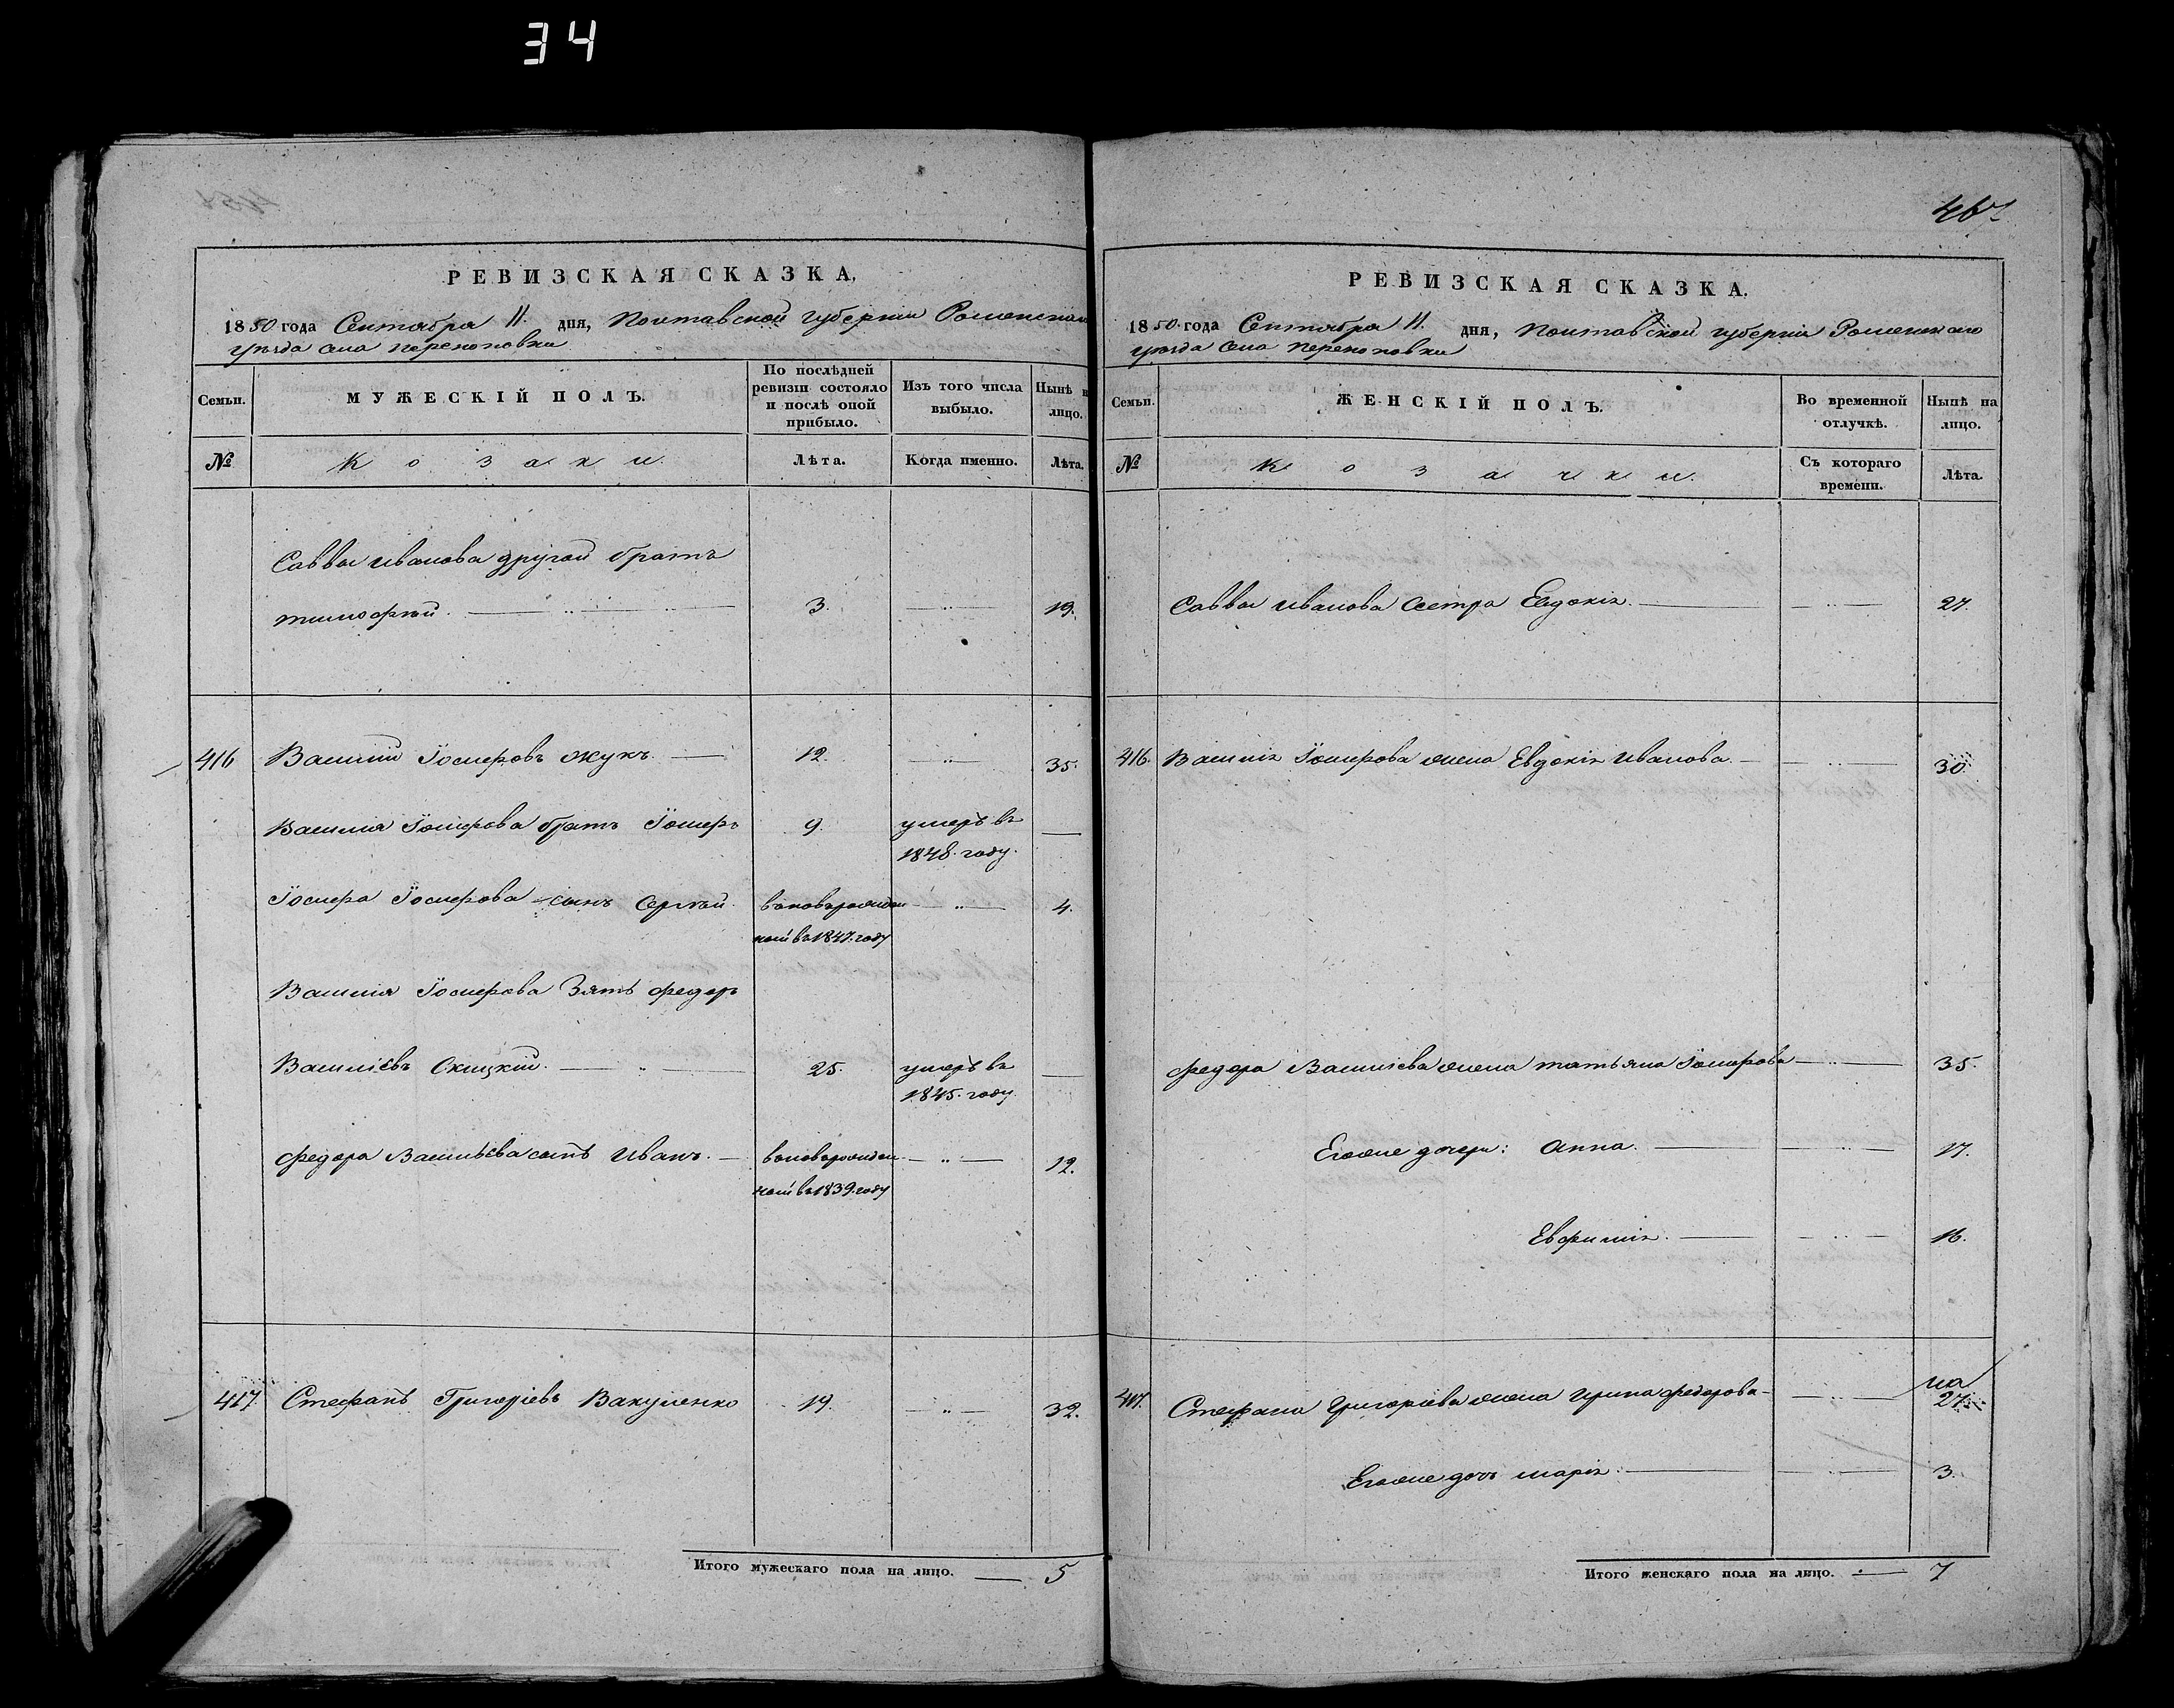 34
467
РЕВИЗСКАЯ СКАЗКА.
1850 года Сентября 11. дня, Полтавской губернии Роменскаго
уѣзда села Перекоповки
Семьи.
МУЖЕСКІЙ ПОЛЪ.
По послѣдней ревизіи состояло и послѣ оной прибыло.
Изъ того числа выбыло.
Нынѣ на лицо.
№
Козаки.
Лѣта.
Когда именно.
Лѣта.
Саввы Иванова другой братъ
Тимофѣй. 3. 19.
416 Василій Іосифовъ Жукъ. 12. 35.
Василія Іосифова братъ Іосифъ 9. умеръ въ
1848. году.
Іосифа Іосифова сынъ Сергѣй. вновьрожден 4.
ной въ 1847. году
Василія Іосифова Зять Федоръ
Василіевъ Скицкій. 25. умеръ въ
1845. году.
Федора Васильева сынъ Иванъ. вновьрожден 12.
ной въ 1839. году
417. Стефанъ Григоріевъ Вакуленко 19. 32.
Итого мужескаго пола на лицо. 5
РЕВИЗСКАЯ СКАЗКА.
1850 года Сентября 11. дня, Полтавской губерніи Роменскаго
уѣзда села Перекоповки
Семьи.
ЖЕНСКІЙ ПОЛЪ.
Во временной отлучкѣ.
Нынѣ на лицо.
№
Козачки.
Съ котораго времени.
Лѣта.
Саввы Иванова Сестра Евдокія. 27.
416. Василія Іосифова жена Евдокія Иванова. 30.
Федора Василіева жена Татьяна Іосифова 35.
Егоже дочери: Анна. 17.
Евфимія. 16.
417. Стефана Григоріева жена Ирина Федорова 27.
Егоже дочь Марія. 3.
Итого женскаго пола на лицо. 7